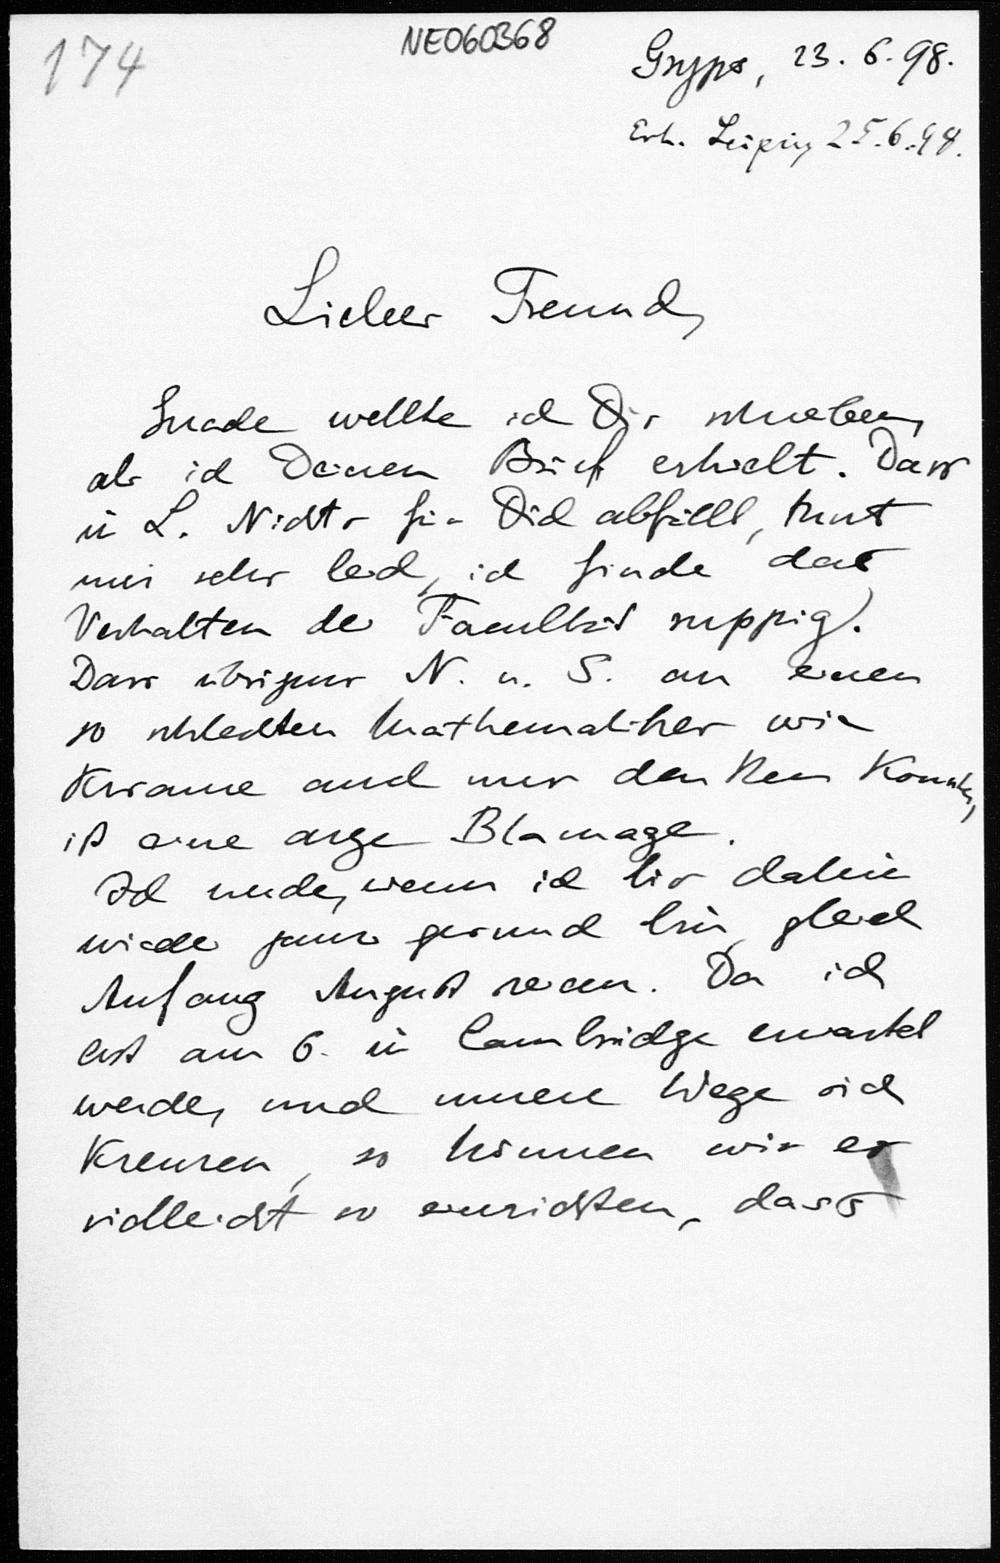 174
NE060368
Gryps, 23. 6. 98.
Erh. Leipzig 25.6.98.
Lieber Freund,
Gerade wollte ich Dir schreiben,
als ich Deinen Brief erhielt. Dass
in L. Nichts für Dich abfällt, thut
mir sehr leid, ich finde das
Verhalten der Facultät ruppig.
Dass übrigens N. u. S. an einen
so schlechten Mathematiker wie
Krause auch nur denken konnten,
ist eine arge Blamage.
Ich werde, wenn ich bis dahin
wieder ganz gesund bin, gleich
Anfang August reisen. Da ich
erst am 6. in Cambridge erwartet
werde, und unsere Wege sich
kreuzen, so können wir es
vielleicht so einrichten, dass